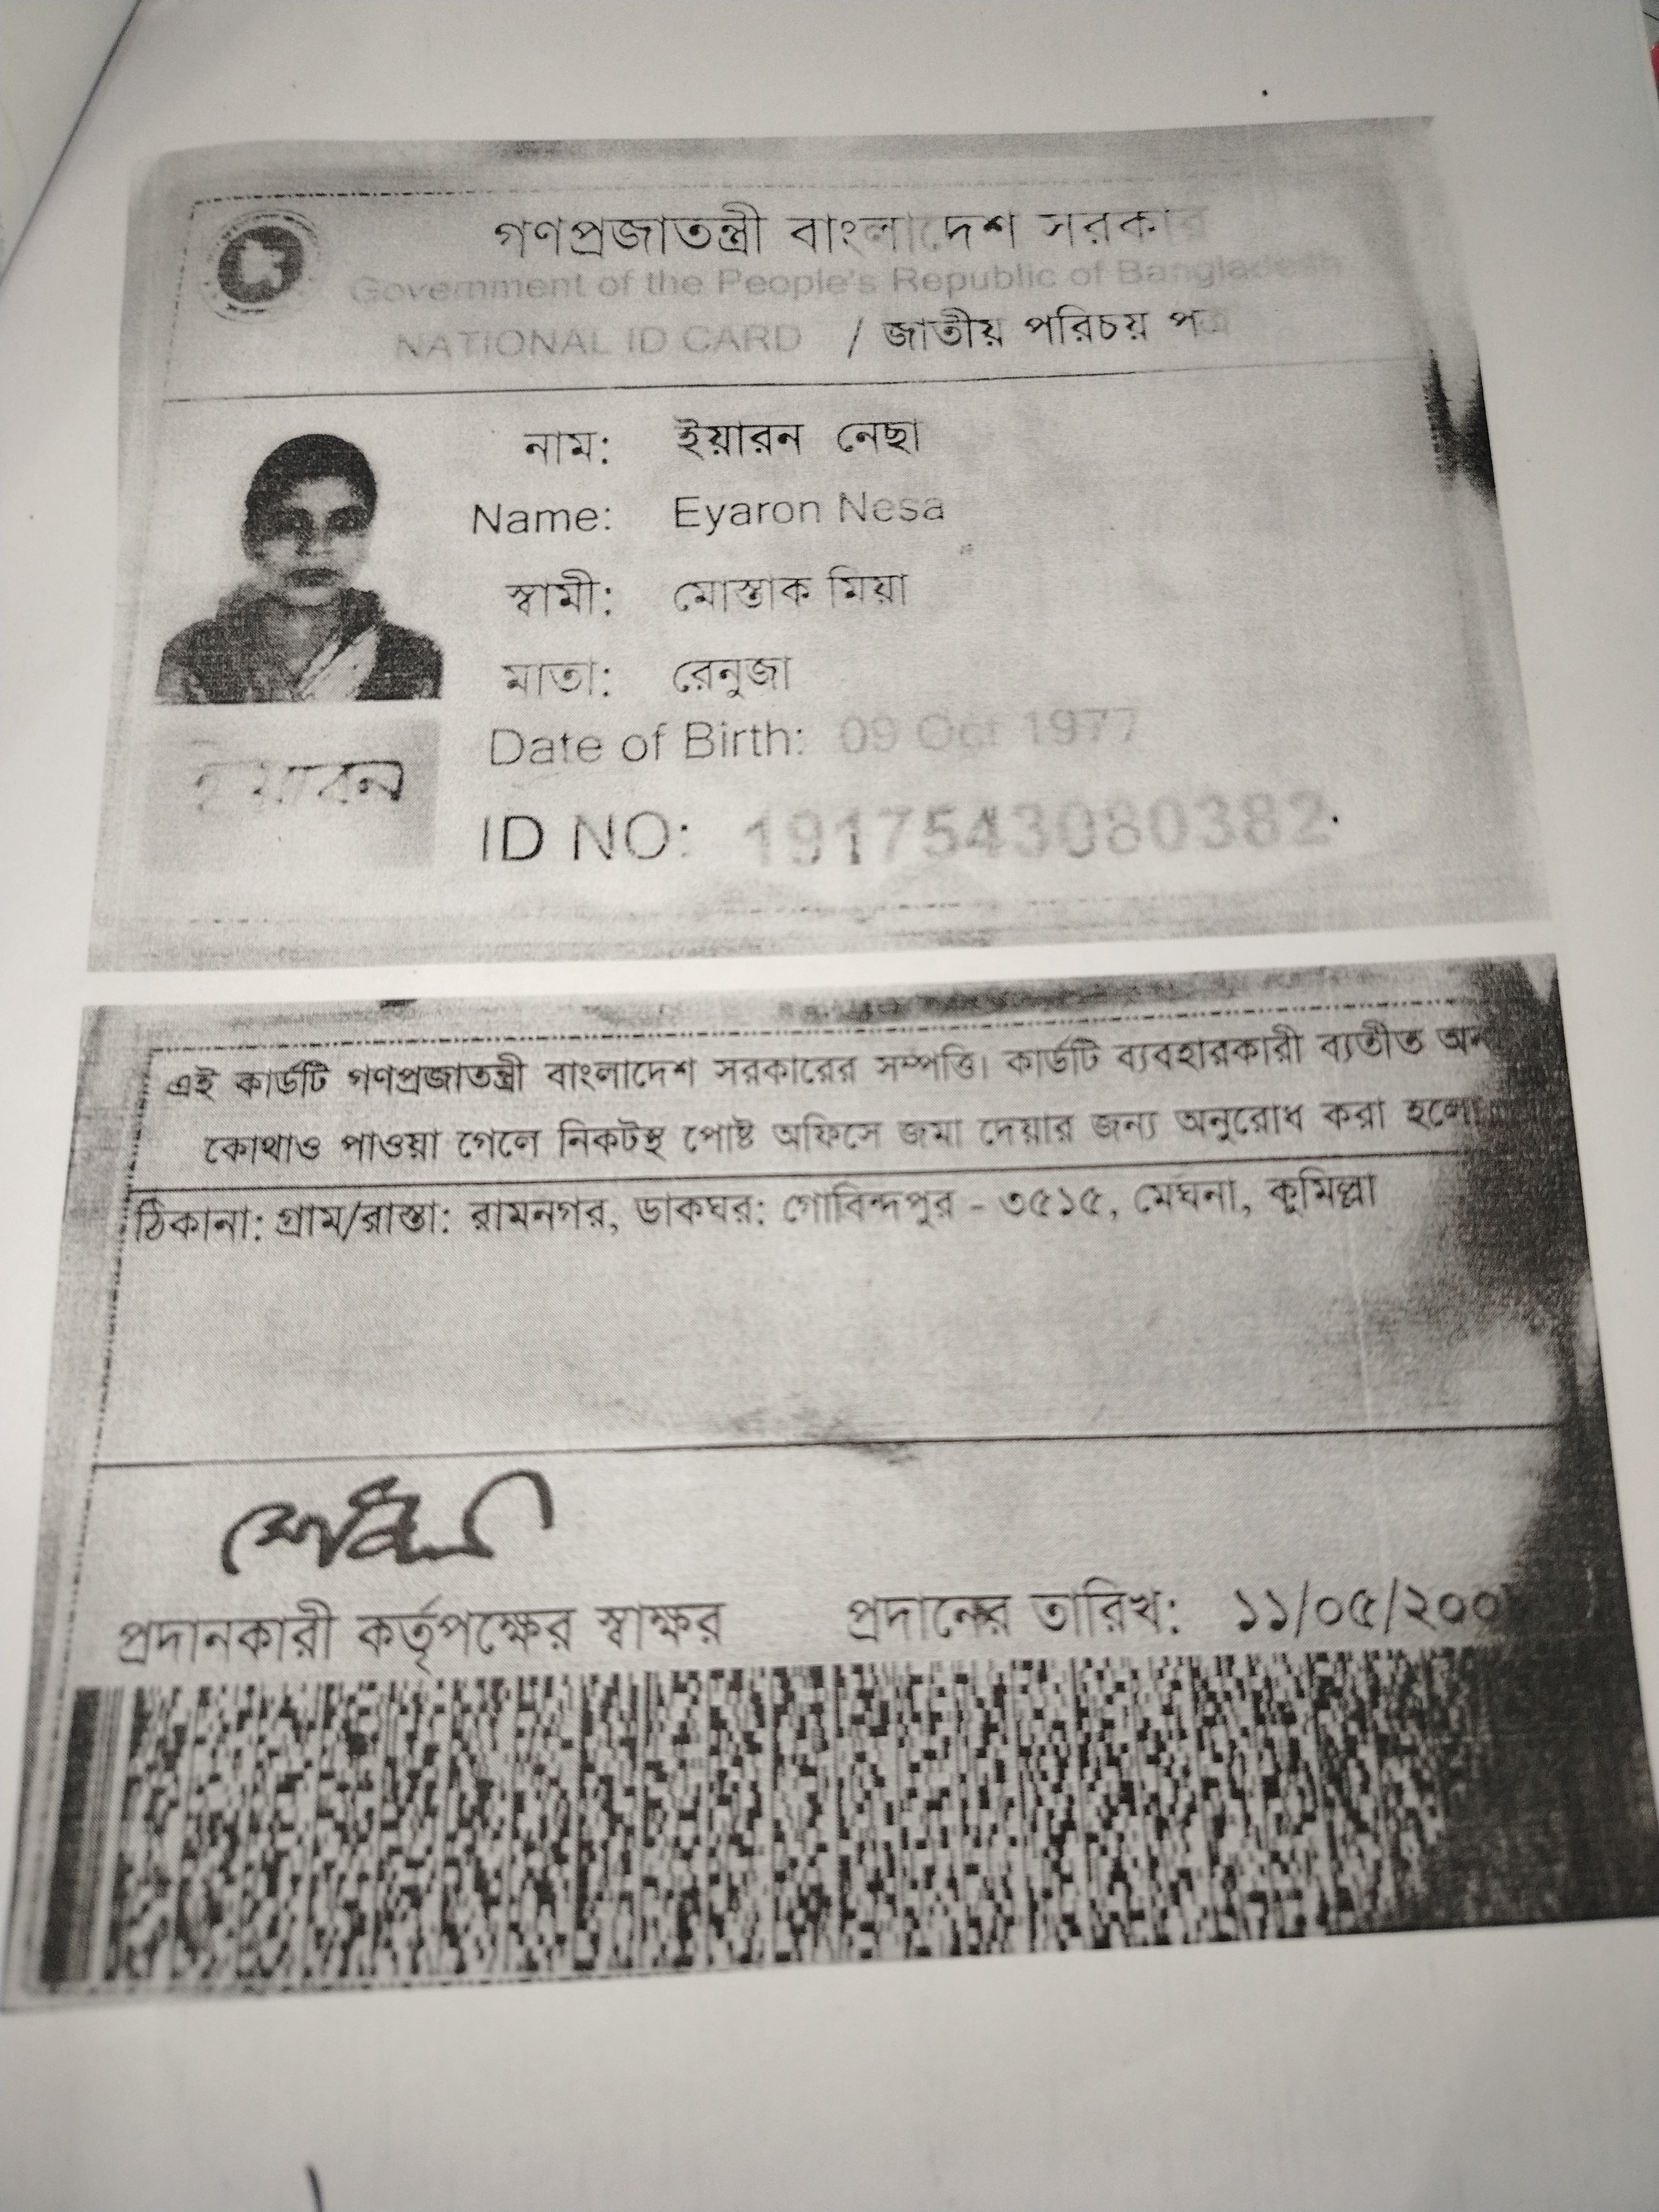 গণপ্রজাতন্ত্রী বাংলাদেশ সরকার
Government of the People's Republic of Bangladesh
NATIONAL ID CARD / জাতীয় পরিচয় পত্র
নাম: ইয়ারন নেছা
Name: Eyaron Nesa
স্বামী: মোস্তাক মিয়া
মাতা: রেনুজা
Date of Birth: 09 Oct 1977
ইয়ারন
ID NO: 1917543080382
এই কার্ডটি গণপ্রজাতন্ত্রী বাংলাদেশ সরকারের সম্পত্তি। কার্ডটি ব্যবহারকারী ব্যতীত অন
কোথাও পাওয়া গেলে নিকটস্থ পোষ্ট অফিসে জমা দেয়ার জন্য অনুরোধ করা হলো
ঠিকানা: গ্রাম/রাস্তা: রামনগর, ডাকঘর: গোবিন্দপুর - ৩৫১৫, মেঘনা, কুমিল্লা
প্রদানকারী কর্তৃপক্ষের স্বাক্ষর প্রদানের তারিখ: ১১/০৫/২০০